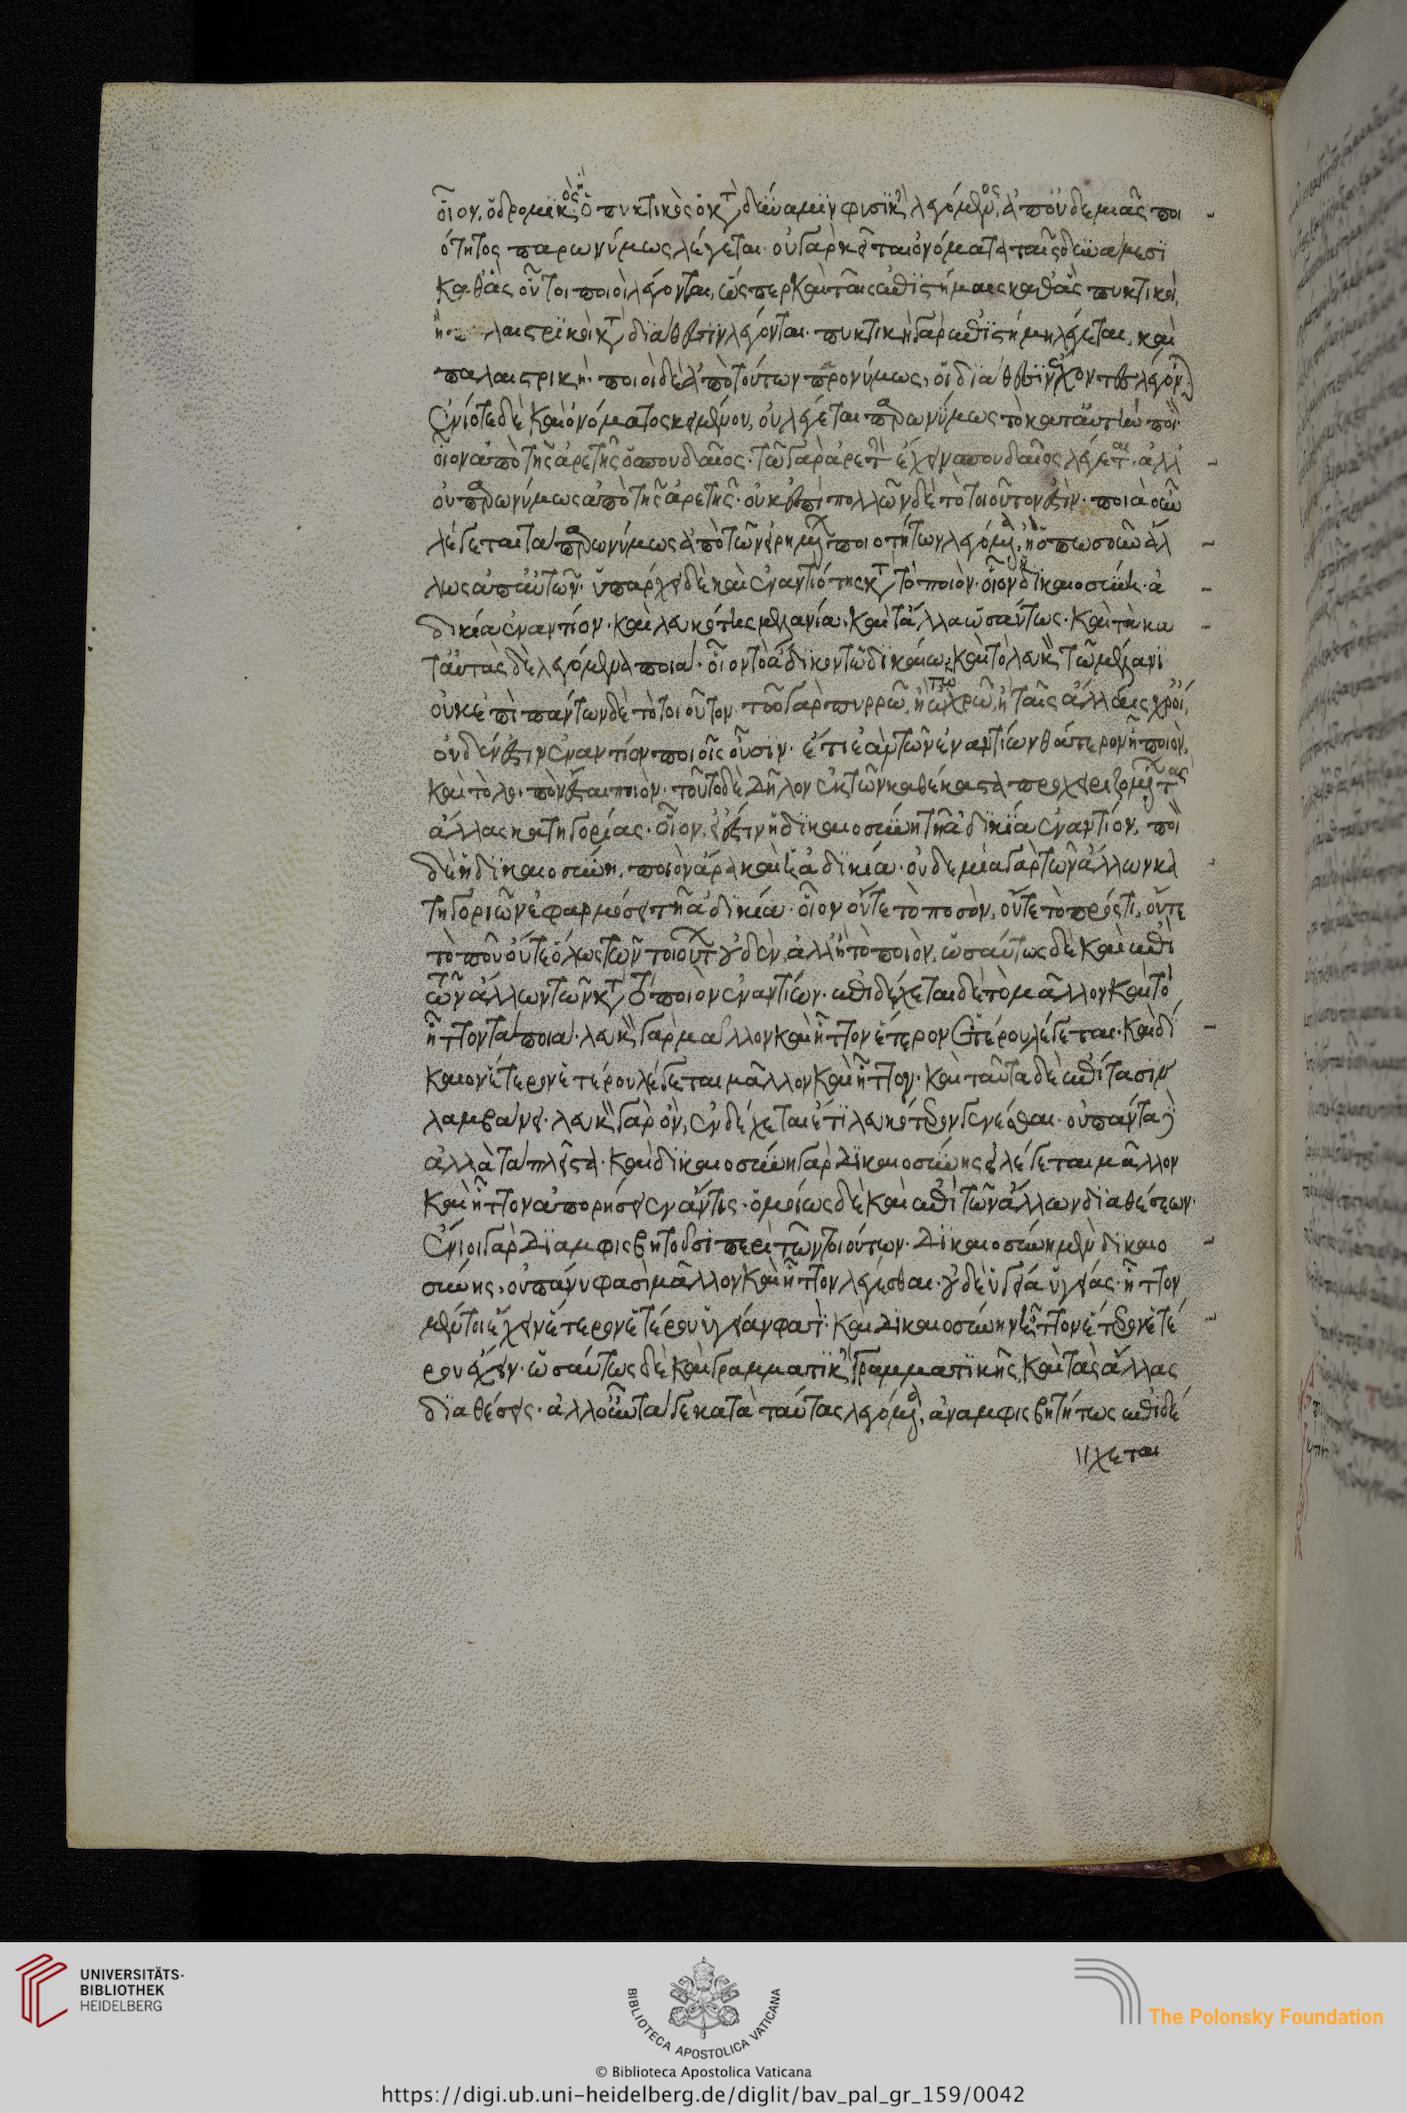 οἷον, ὁ δρομικὸς ἢ ὁ πυκτικὸς ὁ κατὰ δύναμιν φυσικὴν λεγόμενος, ἀπ' οὐδεμιᾶς ποι
ότητος παρωνύμως λέγεται· οὐ γὰρ κεῖται ὀνόματα ταῖς δυνάμεσι
καθ' ἃς οὗτοι ποιοὶ λέγονται, ὥσπερ καὶ ταῖς ἐπιστήμαις καθ' ἃς πυκτικοὶ,
ἢ παλαιστρικοὶ κατὰ διάθεσιν λέγονται· πυκτικὴ γὰρ ἐπιστήμη λέγεται, καὶ
παλαιστρικὴ· ποιοὶ δὲ ἀπὸ τούτων παρονύμως, οἱ διάθεσιν ἔχοντες λέγον
ἐνίοτε δὲ καὶ ὀνόματος κειμένου, οὐ λέγεται παρωνύμως τὸ κατ' αὐτὴν ποι
οἷον ἀπὸ τῆς ἀρετῆς ὁ σπουδαῖος· τῶ γὰρ ἀρετὴν ἔχειν σπουδαῖος λέγεται· ἀλλ'
οὐ παρωνύμως ἀπὸ τῆς ἀρετῆς· οὐκ ἐπὶ πολλῶν δὲ τὸ τοιοῦτον ἐστὶν· ποιὰ οὖν
λέγεται τὰ παρωνύμως ἀπὸ τῶν εἰρημένων ποιοτήτων λεγόμενα, ἢ ὁπωσοῦν ἄλ
λως ἀπ' αὐτῶν· ὑπάρχει δὲ καὶ ἐναντιότης κατὰ τὸ ποιὸν· οἷον δικαιοσύνη· ἀ
δικία ἐναντίον· καὶ λευκότης μελανία· καὶ τἄλλα ὡσαύτως· καὶ τὰ κα
τ' αὐτὰς δὲ λεγόμενα ποιὰ· οἷον τὸ ἄδικον τῶ δικαίω· καὶ τὸ λευκὸν τῶ μέλανι
οὐκ ἐπὶ πάντων δὲ τὸ τοιοῦτον τῶ γὰρ πυρρῶ, ἢ ὠχρῶ, ἢ ταῖς ἄλλαις χροι
οὐδέν ἐστιν ἐναντίον ποιοῖς οὖσιν· ἔτι ἐὰν τῶν ἐναντίων θάτερον ἦ ποιὸν,
καὶ τὸ λοιπὸν ἔσται ποιὸν· τοῦτο δὲ δῆλον ἐκ τῶν καθέκαστα προχειριζομένων τὰς
ἄλλας κατηγορίας· οἷον, εἰ ἔστιν ἡ δικαιοσύνη τῆ ἀδικία ἐναντίον, ποι
δὲ ἡ δικαιοσύνη, ποιὸν ἄρα καὶ ἡ ἀδικία· οὐδεμία γὰρ τῶν ἄλλων κα
τηγοριῶν ἐφαρμόσει τῆ ἀδικία· οἷον οὔτε τὸ ποσὸν, οὔτε τὸ πρός τι, οὔτε
τὸ ποῦ οὔτε ὅλως τῶν τοιούτων οὐδὲν, ἀλλ' ἢ τὸ ποιὸν, ὡσαύτως δὲ καὶ ἐπὶ
τῶν ἄλλων τῶν κατὰ τὸ ποιὸν ἐναντίων· ἐπιδέχεται δὲ τὸ μᾶλλον καὶ τὸ
ἧττον τὰ ποιὰ· λευκὸν γὰρ μᾶλλον καὶ ἧττον ἕτερον ἑτέρου λέγεται· καὶ δί
καιον ἕτερον ἑτέρου λέγεται μᾶλλον καὶ ἧττον· καὶ ταῦτα δὲ ἐπίτασιν
λαμβάνει· λευκὸν γὰρ ὂν, ἐνδέχεται ἔτι λευκότερον γενέσθαι· οὐ πάντα δὲ
ἀλλὰ τὰ πλεῖστα· καὶ δικαιοσύνη γὰρ δικαιοσύνης εἰ λέγεται μᾶλλον
καὶ ἧττον ἀπορήσειεν ἄν τις· ὁμοίως δὲ καὶ ἐπὶ τῶν ἄλλων διαθέσεων·
ἔνιοι γὰρ διαμφισβητοῦσι περὶ τῶν τοιούτων· δικαιοσύνη μὲν δικαιο
σύνης, οὐ πάνυ φασὶ μᾶλλον καὶ ἧττον λέγεσθαι· οὐδὲ ὑγεία ὑγείας· ἧττον
μέντοι ἔχειν ἕτερον ἑτέρου ὑγείαν φασὶ· καὶ δικαιοσύνην ἧττον ἕτερον ἑτέ
ρου ἔχειν· ὡσαύτως δὲ καὶ γραμματικὴν γραμματικῆς, καὶ τὰς ἄλλας
διαθέσεις· ἀλλ' οὖν τά γε κατὰ ταύτας λεγόμενα, ἀναμφισβητήτως ἐπιδέ
χεται
UNIVERSITÄTS-
BIBLIOTHEK
HEIDELBERG
BIBLIOTECA APOSTOLICA VATICANA
The Polonsky Foundation
© Biblioteca Apostolica Vaticana
https://digi.ub.uni-heidelberg.de/diglit/bav_pal_gr_159/0042